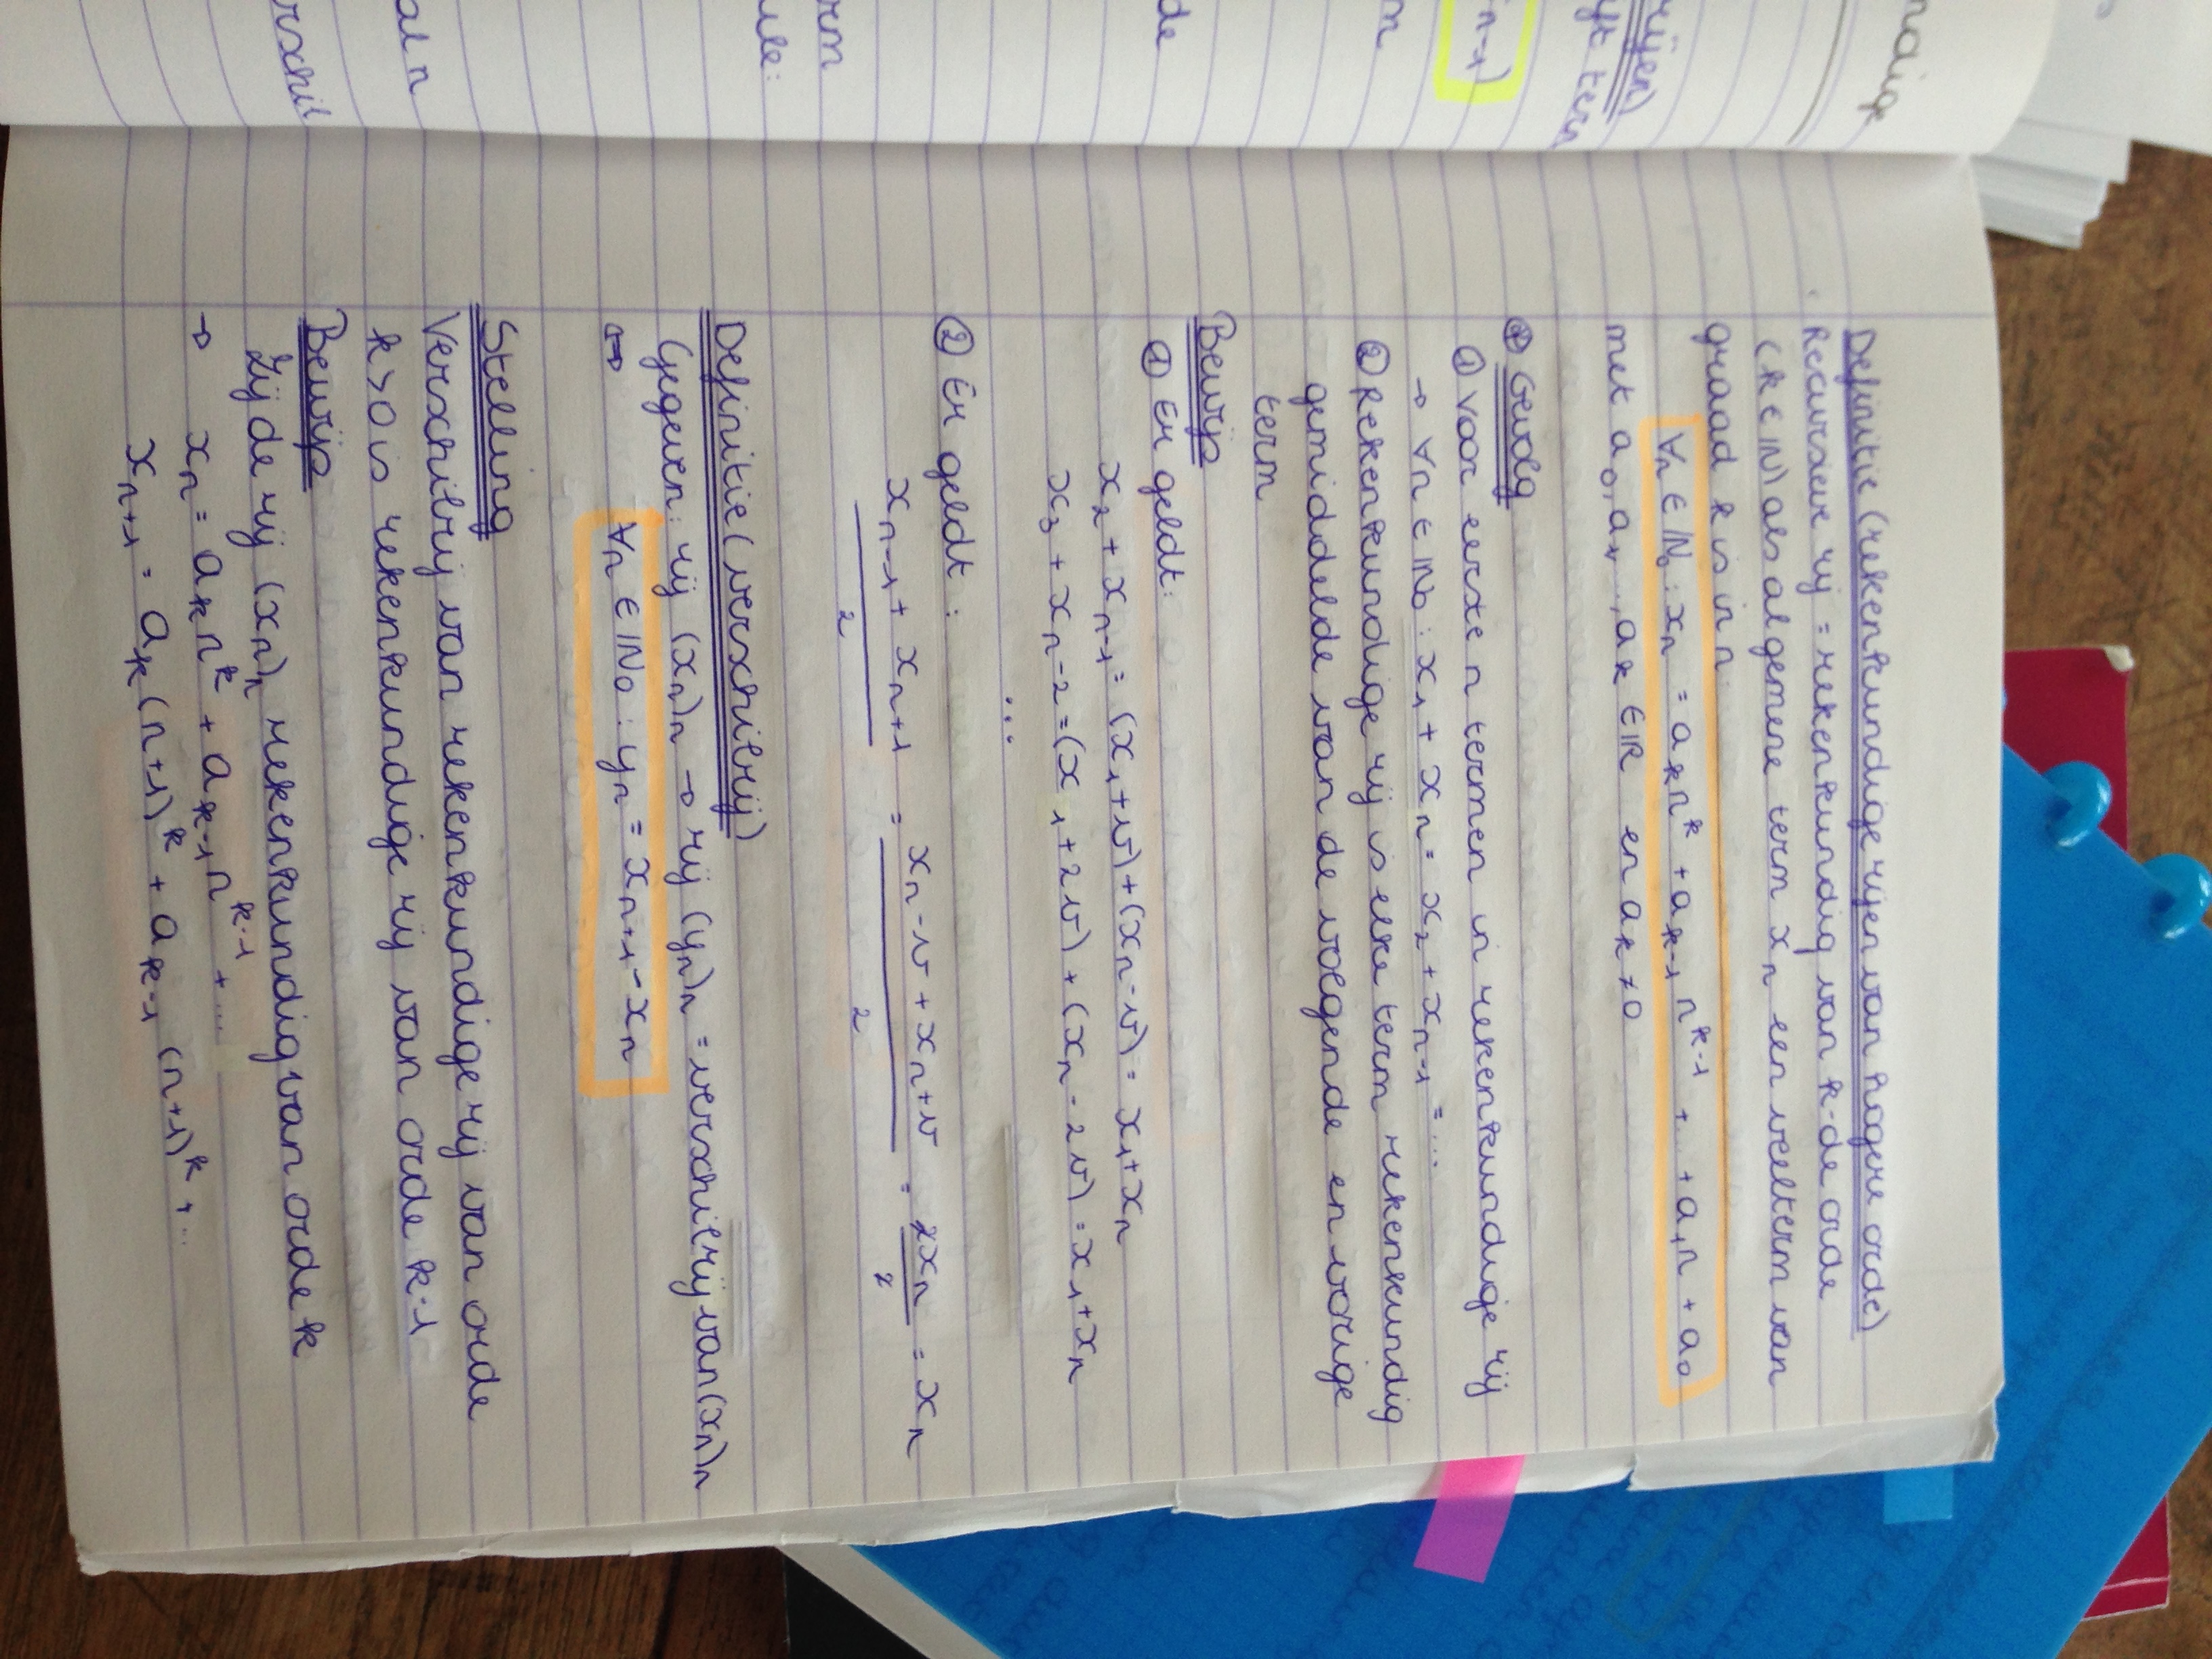 ndige
rijen)
ft term
n-1)
m
de
rm
ule:
al n
rschil
Definitie (rekenkundige rijen van hogere orde)
Recursieve rij = rekenkundig van k-de orde
(k ∈ IN) als algemene term xₙ een veelterm van
graad k is in n.
∀n ∈ IN₀ : xₙ = aₖnᵏ + aₖ₋₁ nᵏ⁻¹ + ... + a₁n + a₀
met a₀, a₁, ..., aₖ ∈ IR en aₖ ≠ 0
Gevolg
① Voor eerste n termen in rekenkundige rij
→ ∀n ∈ IN₀ : x₁ + xₙ = x₂ + xₙ₋₁ = ...
② Rekenkundige rij is elke term rekenkundig
gemiddelde van de volgende en vorige
term
Bewijs
① Er geldt:
x₂ + xₙ₋₁ = (x₁ + v) + (xₙ - v) = x₁ + xₙ
x₃ + xₙ₋₂ = (x₁ + 2v) + (xₙ - 2v) = x₁ + xₙ
...
② Er geldt :
(xₙ₋₁ + xₙ₊₁)/2 = (xₙ - v + xₙ + v)/2 = 2xₙ/2 = xₙ
Definitie (verschilrij)
Gegeven: rij (xₙ)ₙ → rij (yₙ)ₙ = verschilrij van (xₙ)ₙ
⇔ ∀n ∈ IN₀ : yₙ = xₙ₊₁ - xₙ
Stelling
Verschilrij van rekenkundige rij van orde
k > 0 is rekenkundige rij van orde k-1
Bewijs
Zij de rij (xₙ)ₙ rekenkundig van orde k
→ xₙ = aₖnᵏ + aₖ₋₁nᵏ⁻¹ + ...
xₙ₊₁ = aₖ(n+1)ᵏ + aₖ₋₁ (n+1)ᵏ + ...